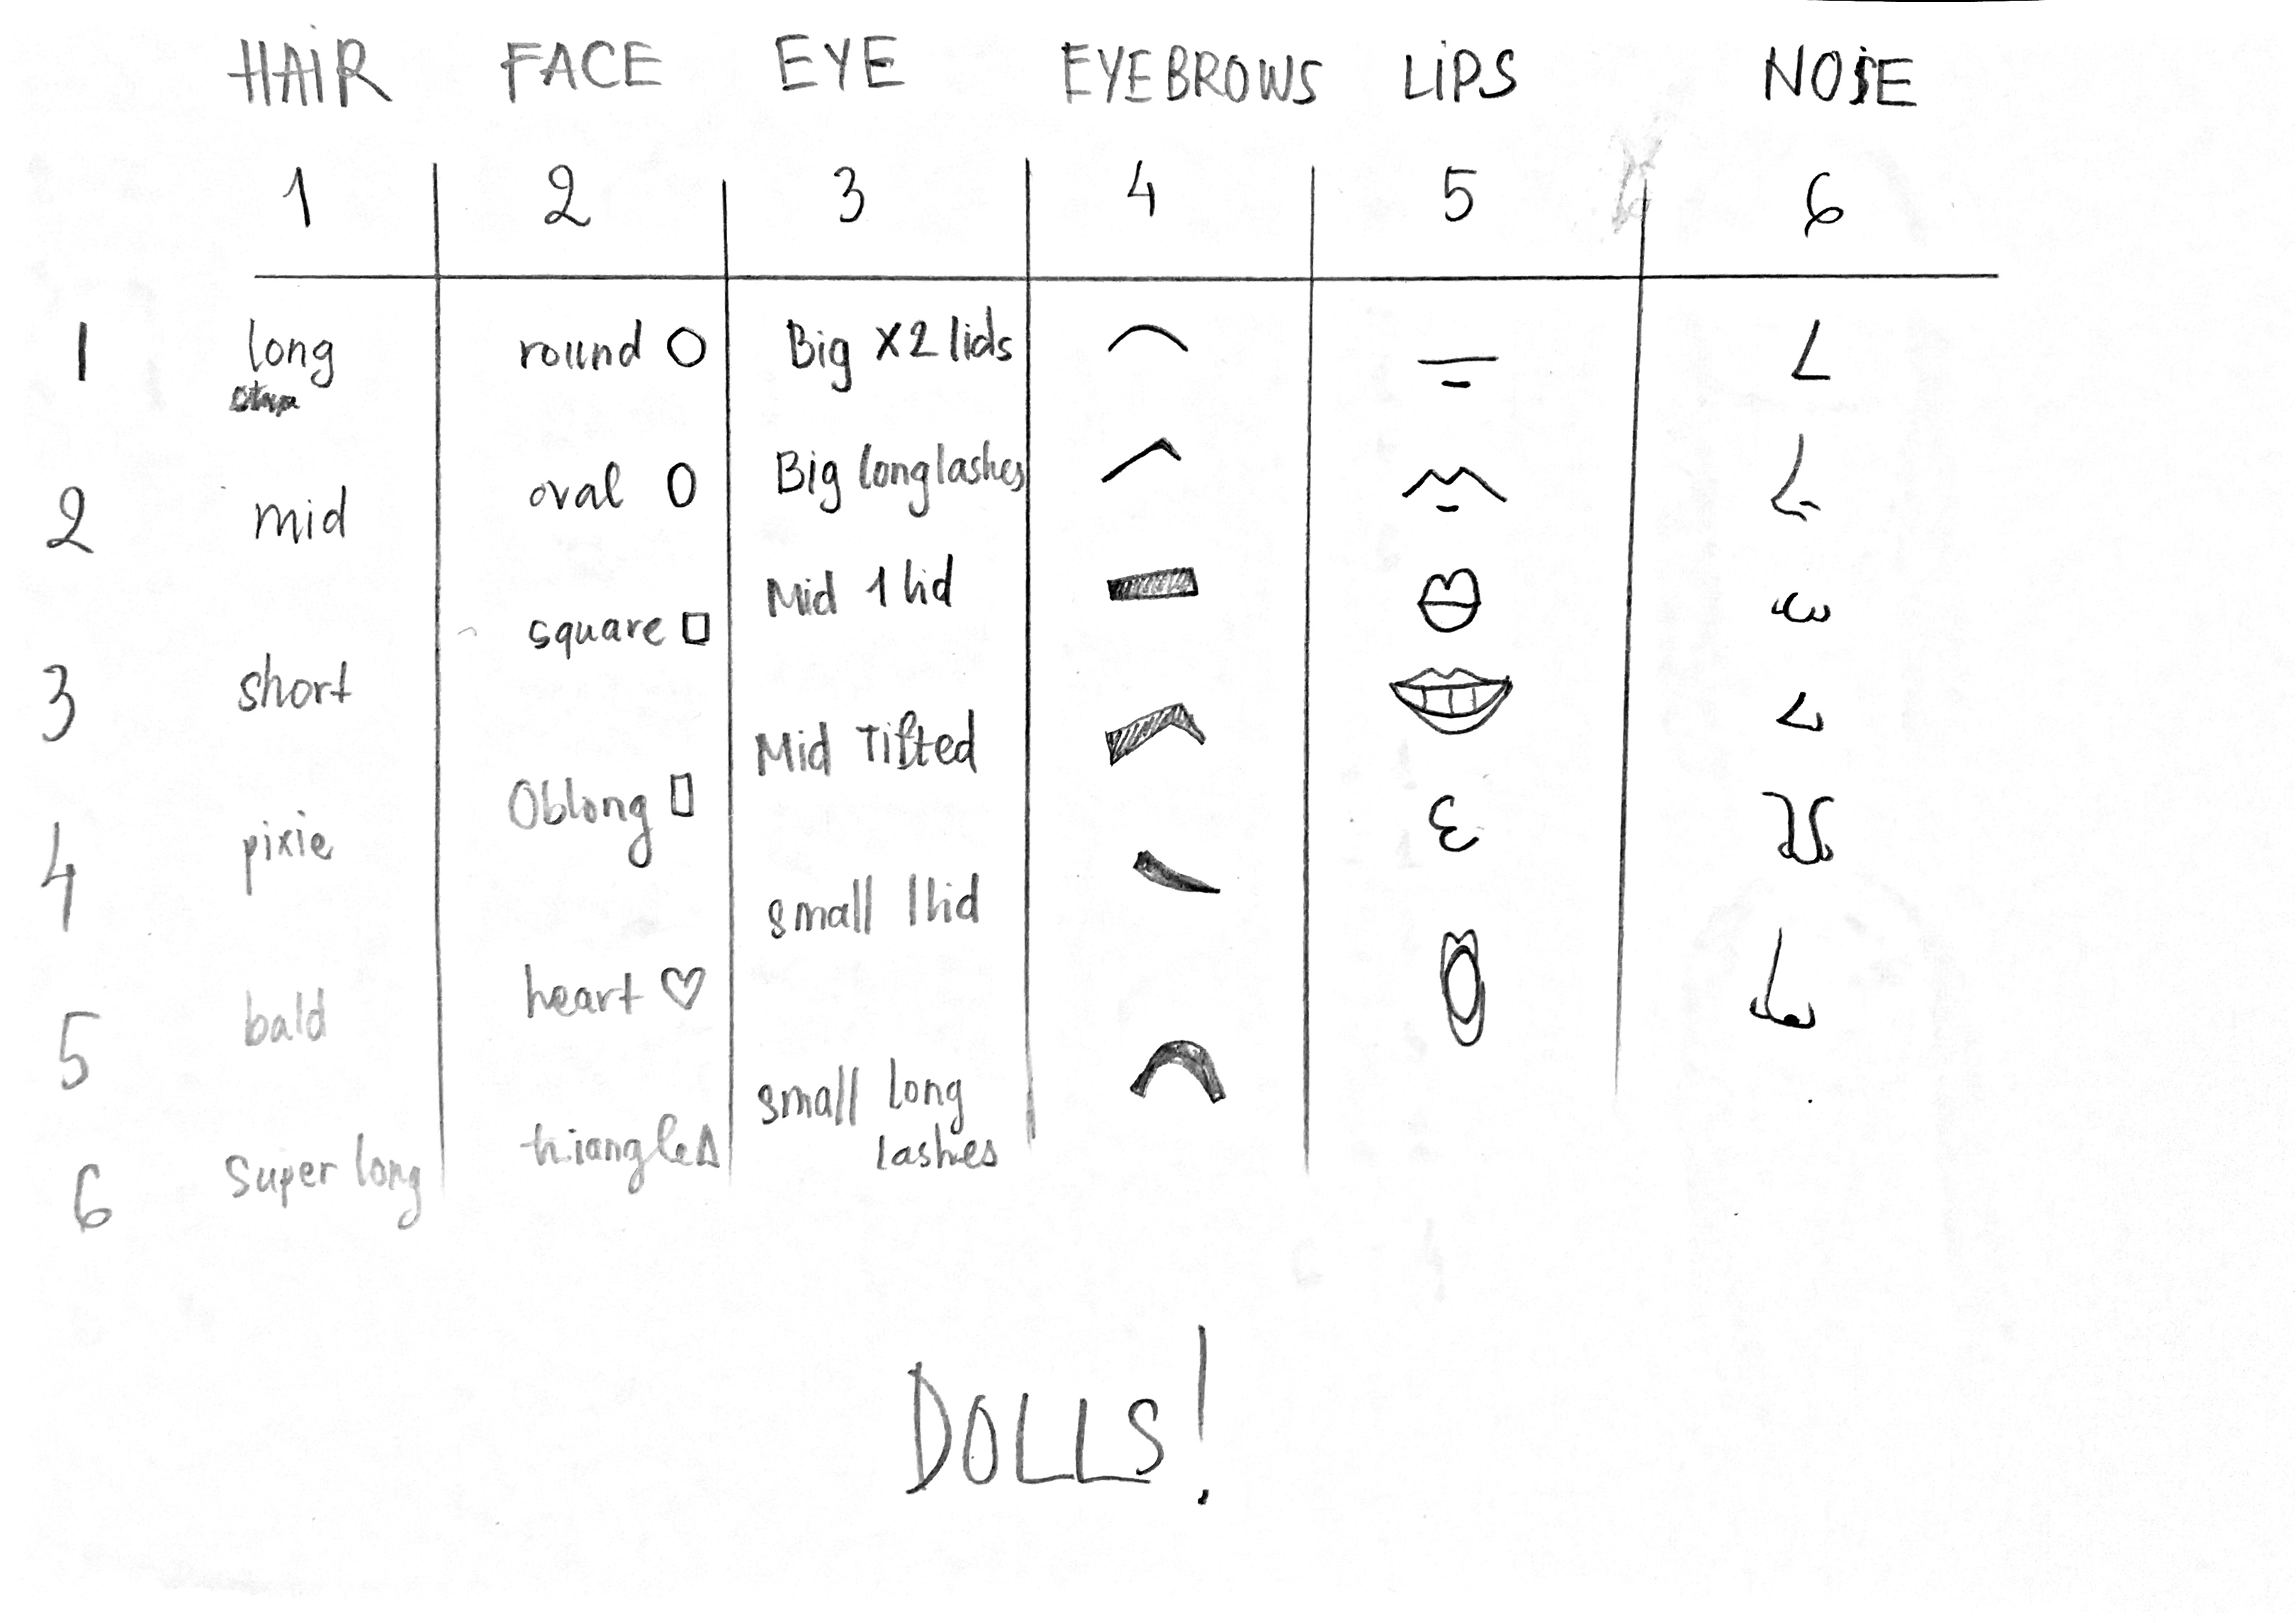 HAiR FACE EYE EYEBROWS LiPS NOSE
1 2 3 4 5 6
1 long round Big X2 lids
2 mid oval Big long lashes
3 short square Mid 1 lid
4 pixie Oblong Mid Tilted
5 bald heart small 1 lid
6 Super long triangle small long lashes
DOLLS!